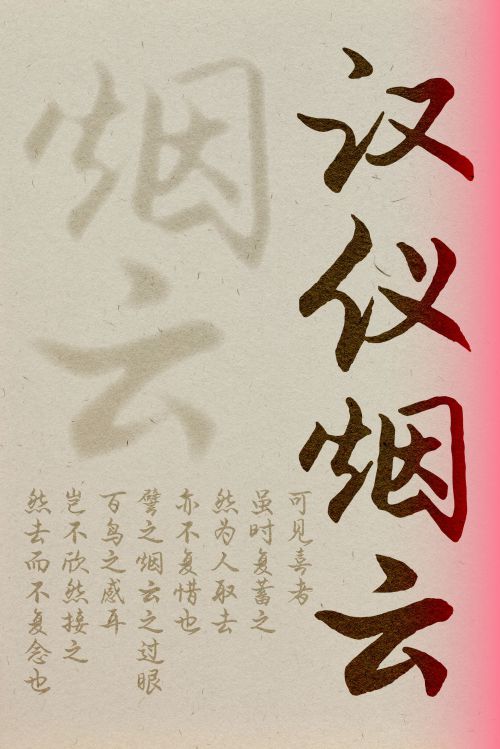 汉仪烟云
烟云
可见喜者
虽时复蓄之
然为人取去
亦不复惜也
譬之烟云之过眼
百鸟之感耳
岂不欣然接之
然去而不复念也